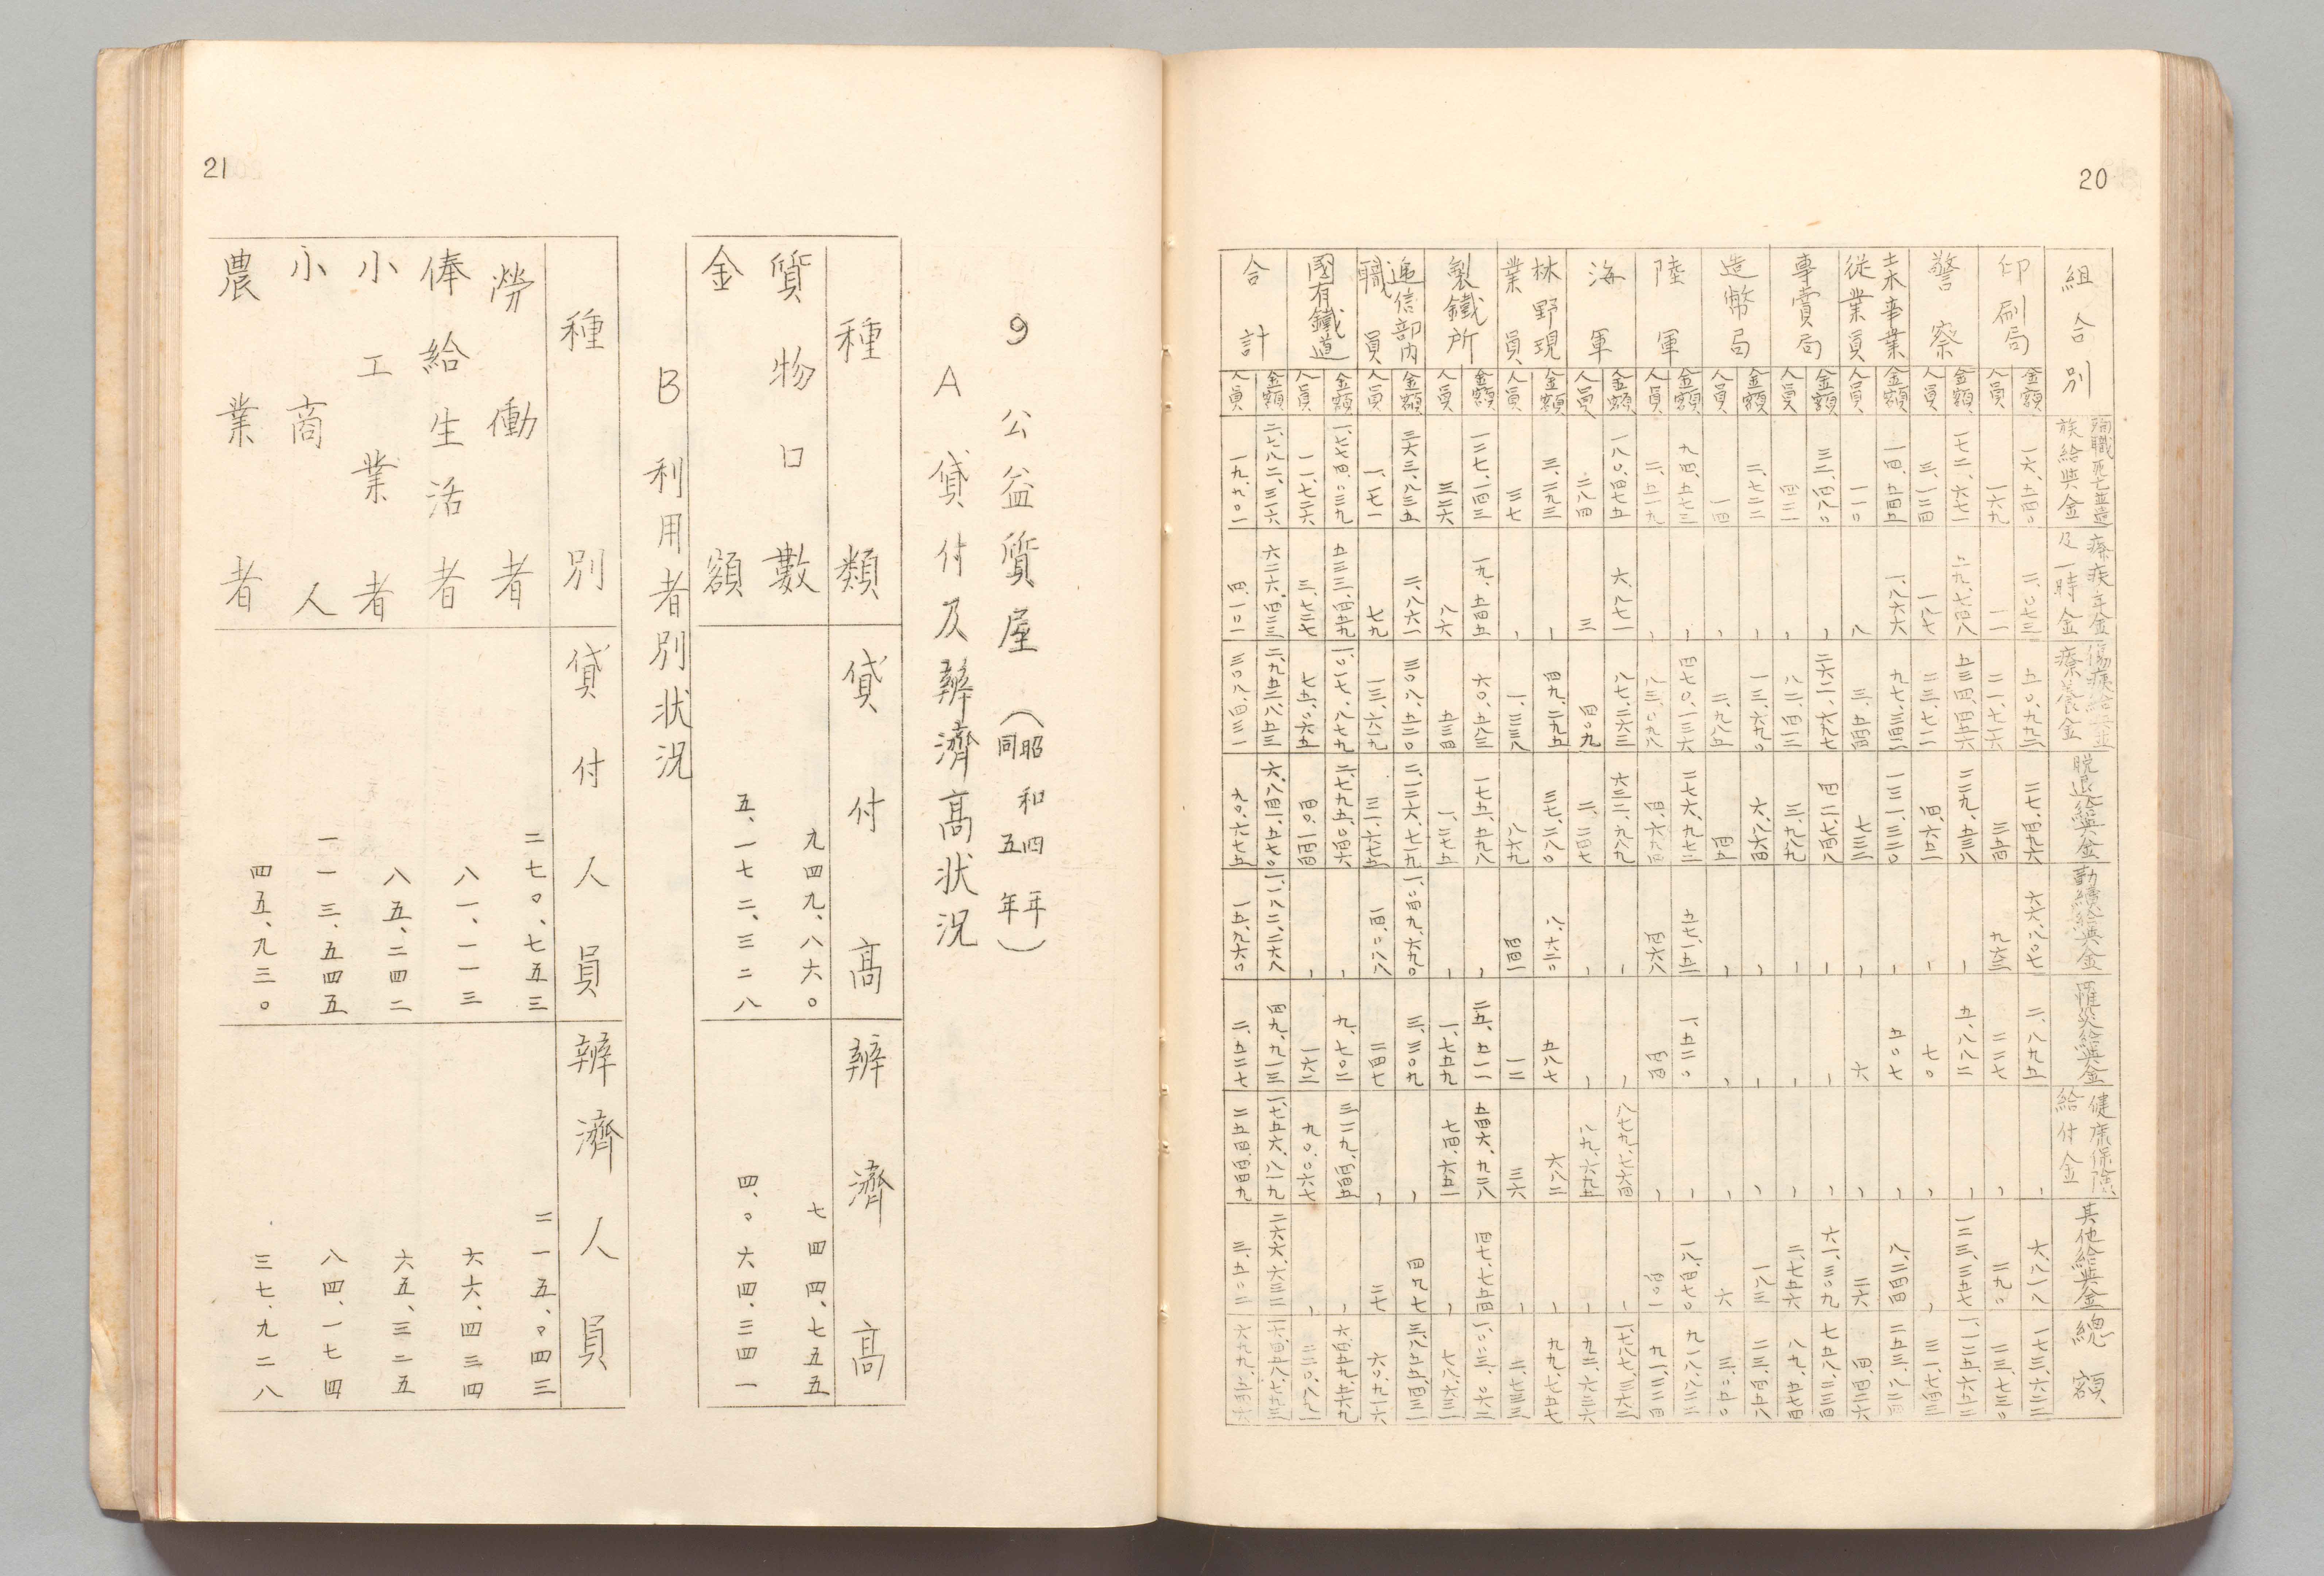 20
組合別 殉職死亡並遺族給與金 癈疾年金及一時金 傷痍給與金療養金 脱退給與金 勤續給與金 罹災給與金 健康保險給付金 其他給與金 總額
印刷局 金額 一六、五四〇 二、〇七三 二七、四九六 六六、八〇七 二、八九五 、 六、八一八 一七三、六二二
人員 一六九 一一 二一、七一六 三五四 九六三 二二七 、 二九〇 二三、七三〇
警察 金額 一七二、六七一 二九、七四八 五三四、四五六 二二九、五三八 、 五、八八二 、 一二三、三五七 一、一二五、六五二
人員 三、一三四 一八七 二三、七一二 四、六五二 、 七〇 、 、 三一、七四三
土木事業從業員 金額 一四、五四五 一、八六六 九七、三四二 一三一、三三〇 、 五〇七 、 八、二四四 二五三、八三四
人員 一一〇 八 三、五四四 七三三 、 六 、 二六 四、四二六
專賣局 金額 三二、四八〇 、 二六二、六九七 四一二、七四八 、 、 、 六一、三〇九 七五八、二三四
人員 四三二 、 八二、四一三 三、九八九 、 、 、 二、七五六 八九、五七四
造幣局 金額 二、七二二 、 一三、六九〇 六、八六四 、 、 、 一八三 二三、四五八
人員 一四 、 二、九八五 四五 、 、 、 六 三、〇五〇
陸軍 金額 九四、五七三 、 四七〇、一三六 二七六、九七二 五七一、五一 一、五二〇 、 一八、四七〇
人員 二、五一九 、 八三、〇九八 四、六九四 四六八 四四 、 四〇一 九一、二二四
海軍 金額 一八〇、四七五 六、八七一 八七、二六三 六三二、九八九 、 、 八七九、七六四 、 一、七八七、三六二
人員 二八四 三 四〇九 二、二四七 、 、 八九、六九五 、 九二、六三六
林野現業員 金額 三、二九三 、 四九、二九五 三七、二八〇 八、六二〇 五八七 六八二 、 九九、七五七
人員 三七 、 一、三三八 八六九 四四一 一二 三六 、 二、七三三
製鐵所 金額 一三七、一四三 一九、五四五 六〇、五八三 一七五、五九八 、 二五、五一一 五四六、九二八 四七、七五四
人員 三二六 八六 五三四 一、二七五 、 一、七五九 七四、六五一 、 七八、六三一
遞信部内職員 金額 二六三、八三五 二、八六一 三〇八、五二〇 二、二三六、七一九 一、〇四九、六九〇 三、三〇九 、 四九七
人員 一、一七一 七九 一三、六二九 三一、六七五 一四、〇八八 二四七 、 二七 六〇、九一六
國有鐵道 金額 一、七七四、〇三九 五三三、四五九 一、〇一七、八七九 二、七九五、〇四六 、 九、七〇二 三二九、四四五 、
人員 一一、七二六 三、七二七 七五、〇六五 四〇、一四四 、 一六二 九〇、〇六七 、
合計 金額 二、七八二、三一六 六二六、四二三 二、九五二、八五三 六、八四一、五七〇 一、一八二、二六八 四九、九一三 一、七五六、八一九 二六六、六三二
人員 一九、九〇一 四、一〇一 三〇八、四三一 九〇、六七五 一五、九六〇 二、五二七 二五四、四四九 三、五〇二
21
9 公益質屋(昭和四年 同五年)
A 貸付及辨濟髙状況
種類 貸付髙 辨濟髙
質物口數 九四九、八六〇 七四四、七五五
金額 五、一七二、三二八 四、〇六四、三四一
B 利用者別状況
種別 貸付人員 辨濟人員
勞働者 二七〇、七五三 二一五、〇四三
俸給生活者 八一、一一三 六六、四三四
小工業者 八五、二四二 六五、三二五
小商人 一一三、五四五 八四、一七四
農業者 四五、九三〇 三七、九二八